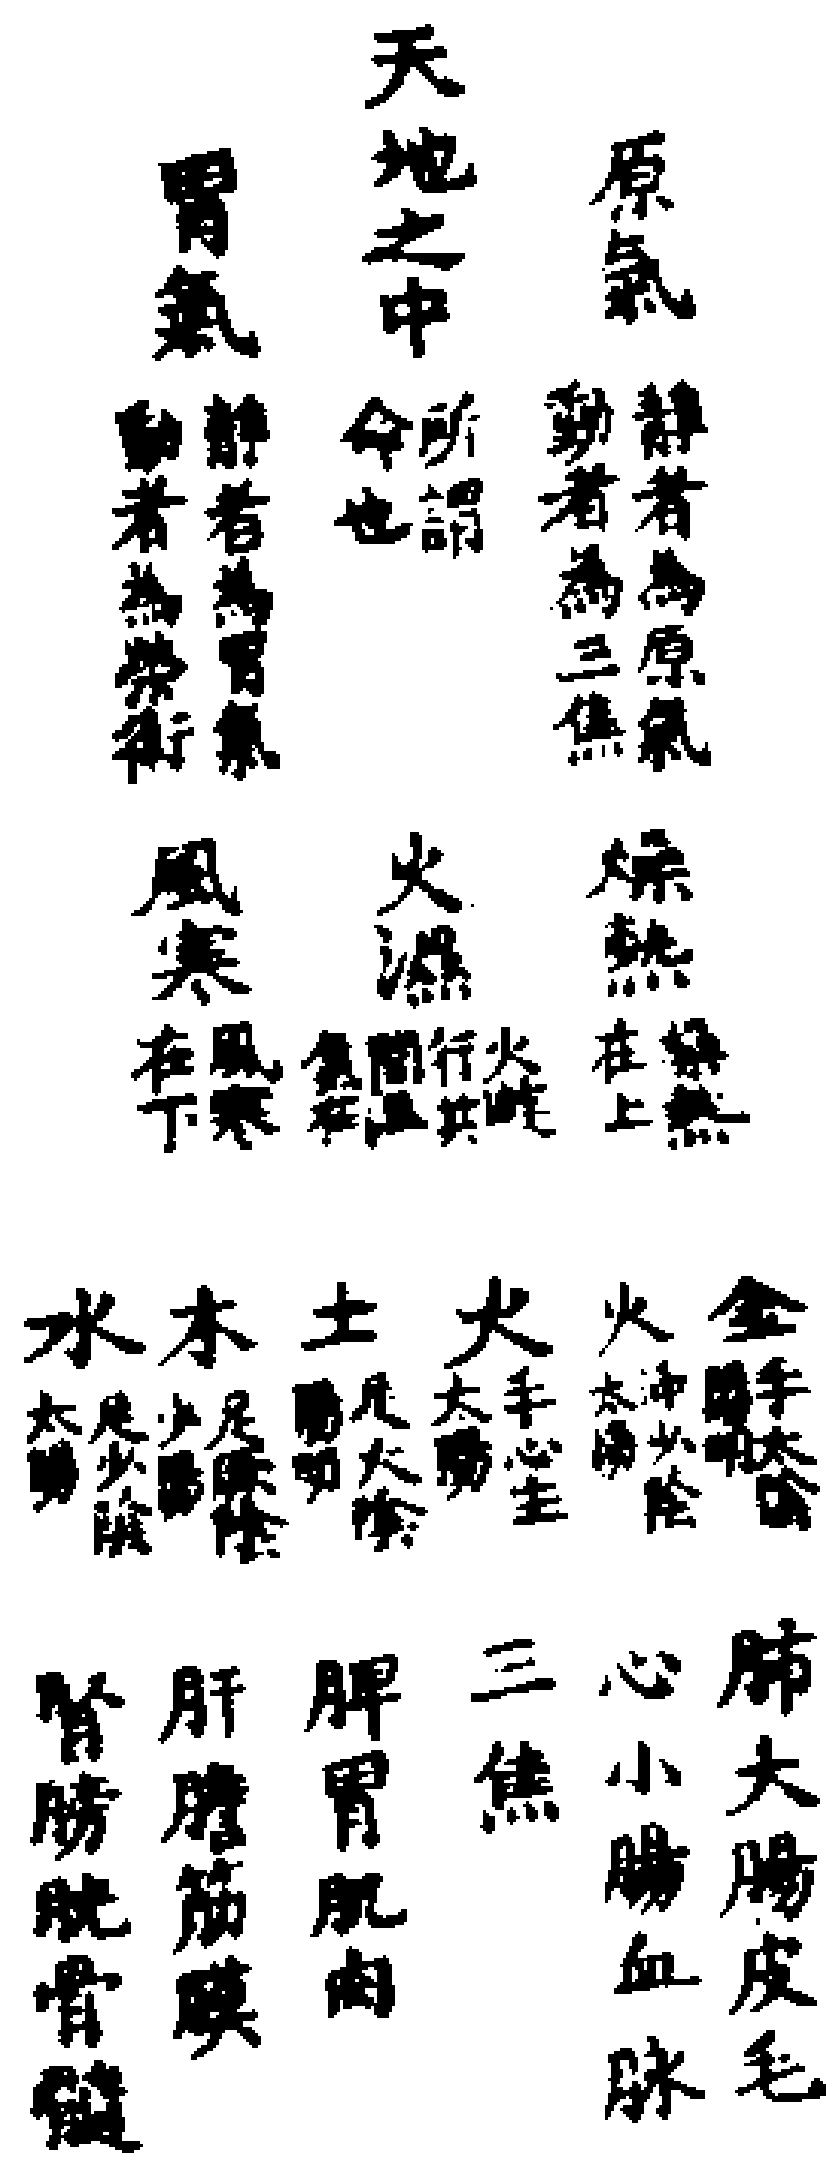 原氣
靜者為原氣
動者為三焦
天地之中
所謂
命也
胃氣
靜者為胃氣
動者為榮衛
燥熱
燥熱
在上
火濕
火
行共
間濕
氣在
風寒
風寒
在下
金
手太陰
陽明
火
手少陰
太陽
火
手心主
太陽
土
足太陰
陽明
木
足厥陰
少陽
水
足少陰
太陽
肺大腸皮毛
心小腸血脉
三焦
脾胃肌肉
肝膽筋膜
腎膀胱骨髓